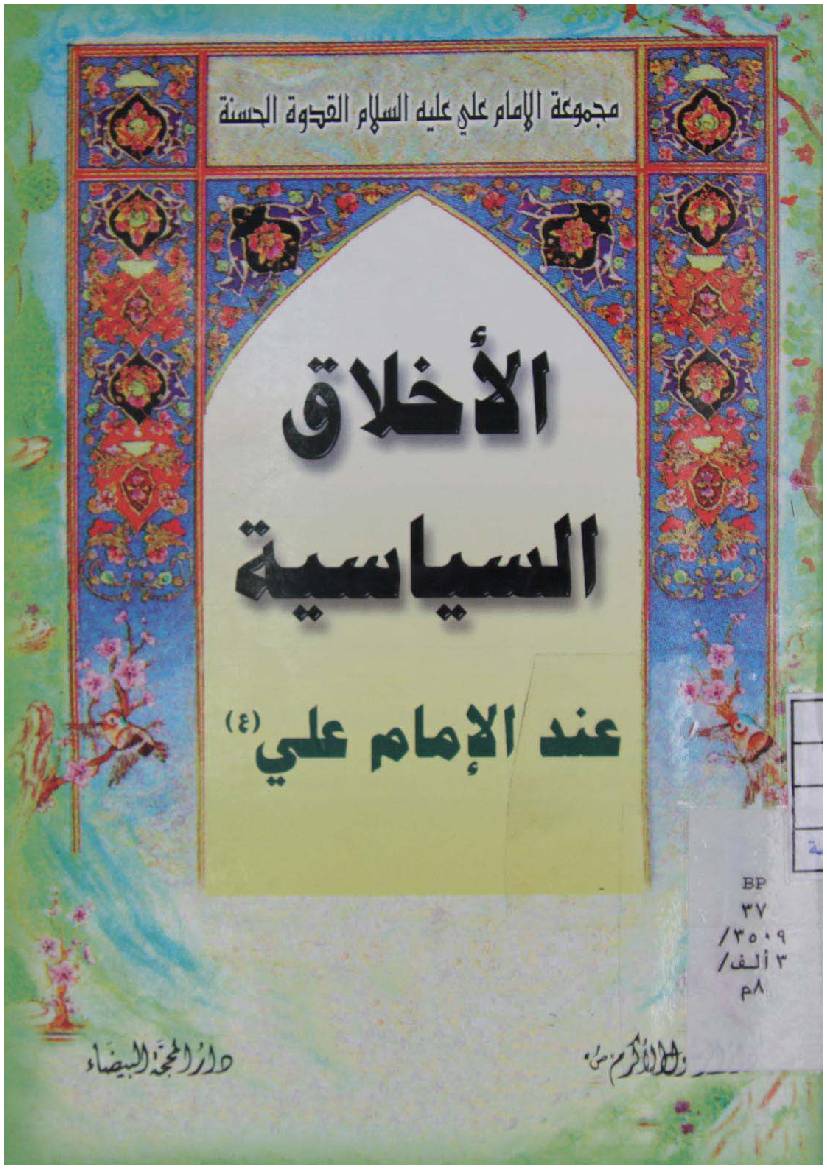 مجموعة الامام علي عليه السلام القدوة الحسنة
الأخلاق
السياسية
عند الإمام علي (ع)
BP
٣٧
٣٥٠٩/
٣ألف/
م٨
الأكرم ص
دار المحجة البيضاء